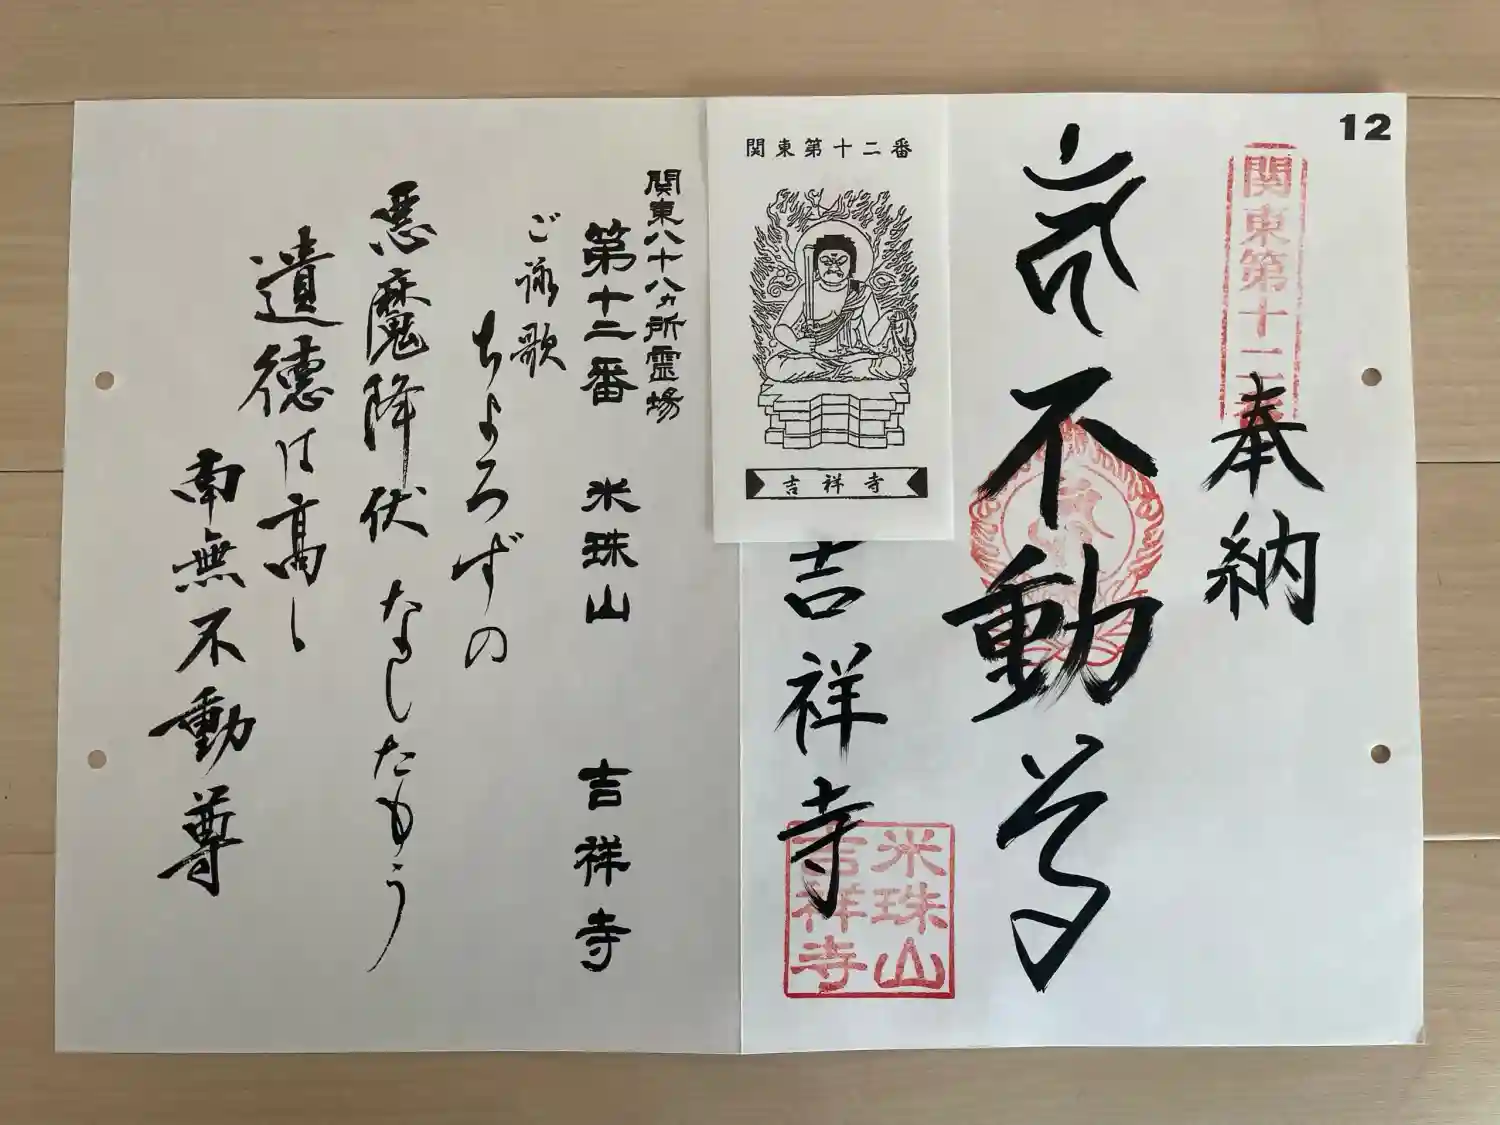 12
関東第十二番
奉納
不動尊
吉祥寺
米珠山
吉祥寺
関東第十二番
吉祥寺
関東八十八ヵ所霊場
第十二番 米珠山 吉祥寺
ご詠歌
ちよろずの
悪魔降伏 なしたもう
遺徳は高し
南無不動尊